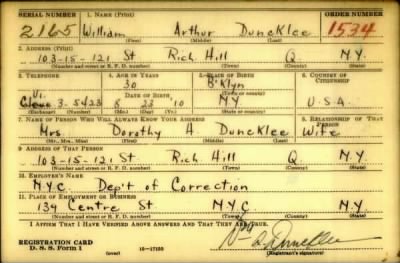 SERIAL NUMBER 1. NAME (Print) ORDER NUMBER
2165 William Arthur Duncklee 1534
(First) (Middle) (Last)
2. ADDRESS (Print)
103-15-121 St Rich. Hill Q N.Y.
(Number and street or R. F. D. number) (Town) (County) (State)
3. TELEPHONE 4. AGE IN YEARS 5. PLACE OF BIRTH 6. COUNTRY OF CITIZENSHIP
30 B'klyn
Vi.
3-5423 DATE OF BIRTH 8 23 '10 NY U.S.A.
(Exchange) (Number) (Mo.) (Day) (Yr.) (State or country)
7. NAME OF PERSON WHO WILL ALWAYS KNOW YOUR ADDRESS 8. RELATIONSHIP OF THAT PERSON
Mrs. Dorothy A. Duncklee Wife
(Mr., Mrs., Miss) (First) (Middle) (Last)
9. ADDRESS OF THAT PERSON
103-15-121 St Rich Hill Q N.Y.
(Number and street or R. F. D. number) (Town) (County) (State)
10. EMPLOYER'S NAME
N.Y.C. Dep't of Correction
11. PLACE OF EMPLOYMENT OR BUSINESS
139 Centre St N.Y.C N.Y.
(Number and street or R. F. D. number) (Town) (County) (State)
I AFFIRM THAT I HAVE VERIFIED ABOVE ANSWERS AND THAT THEY ARE TRUE.
Wm A. Duncklee
REGISTRATION CARD
D. S. S. Form 1 (over) 16-17105 (Registrant's signature)